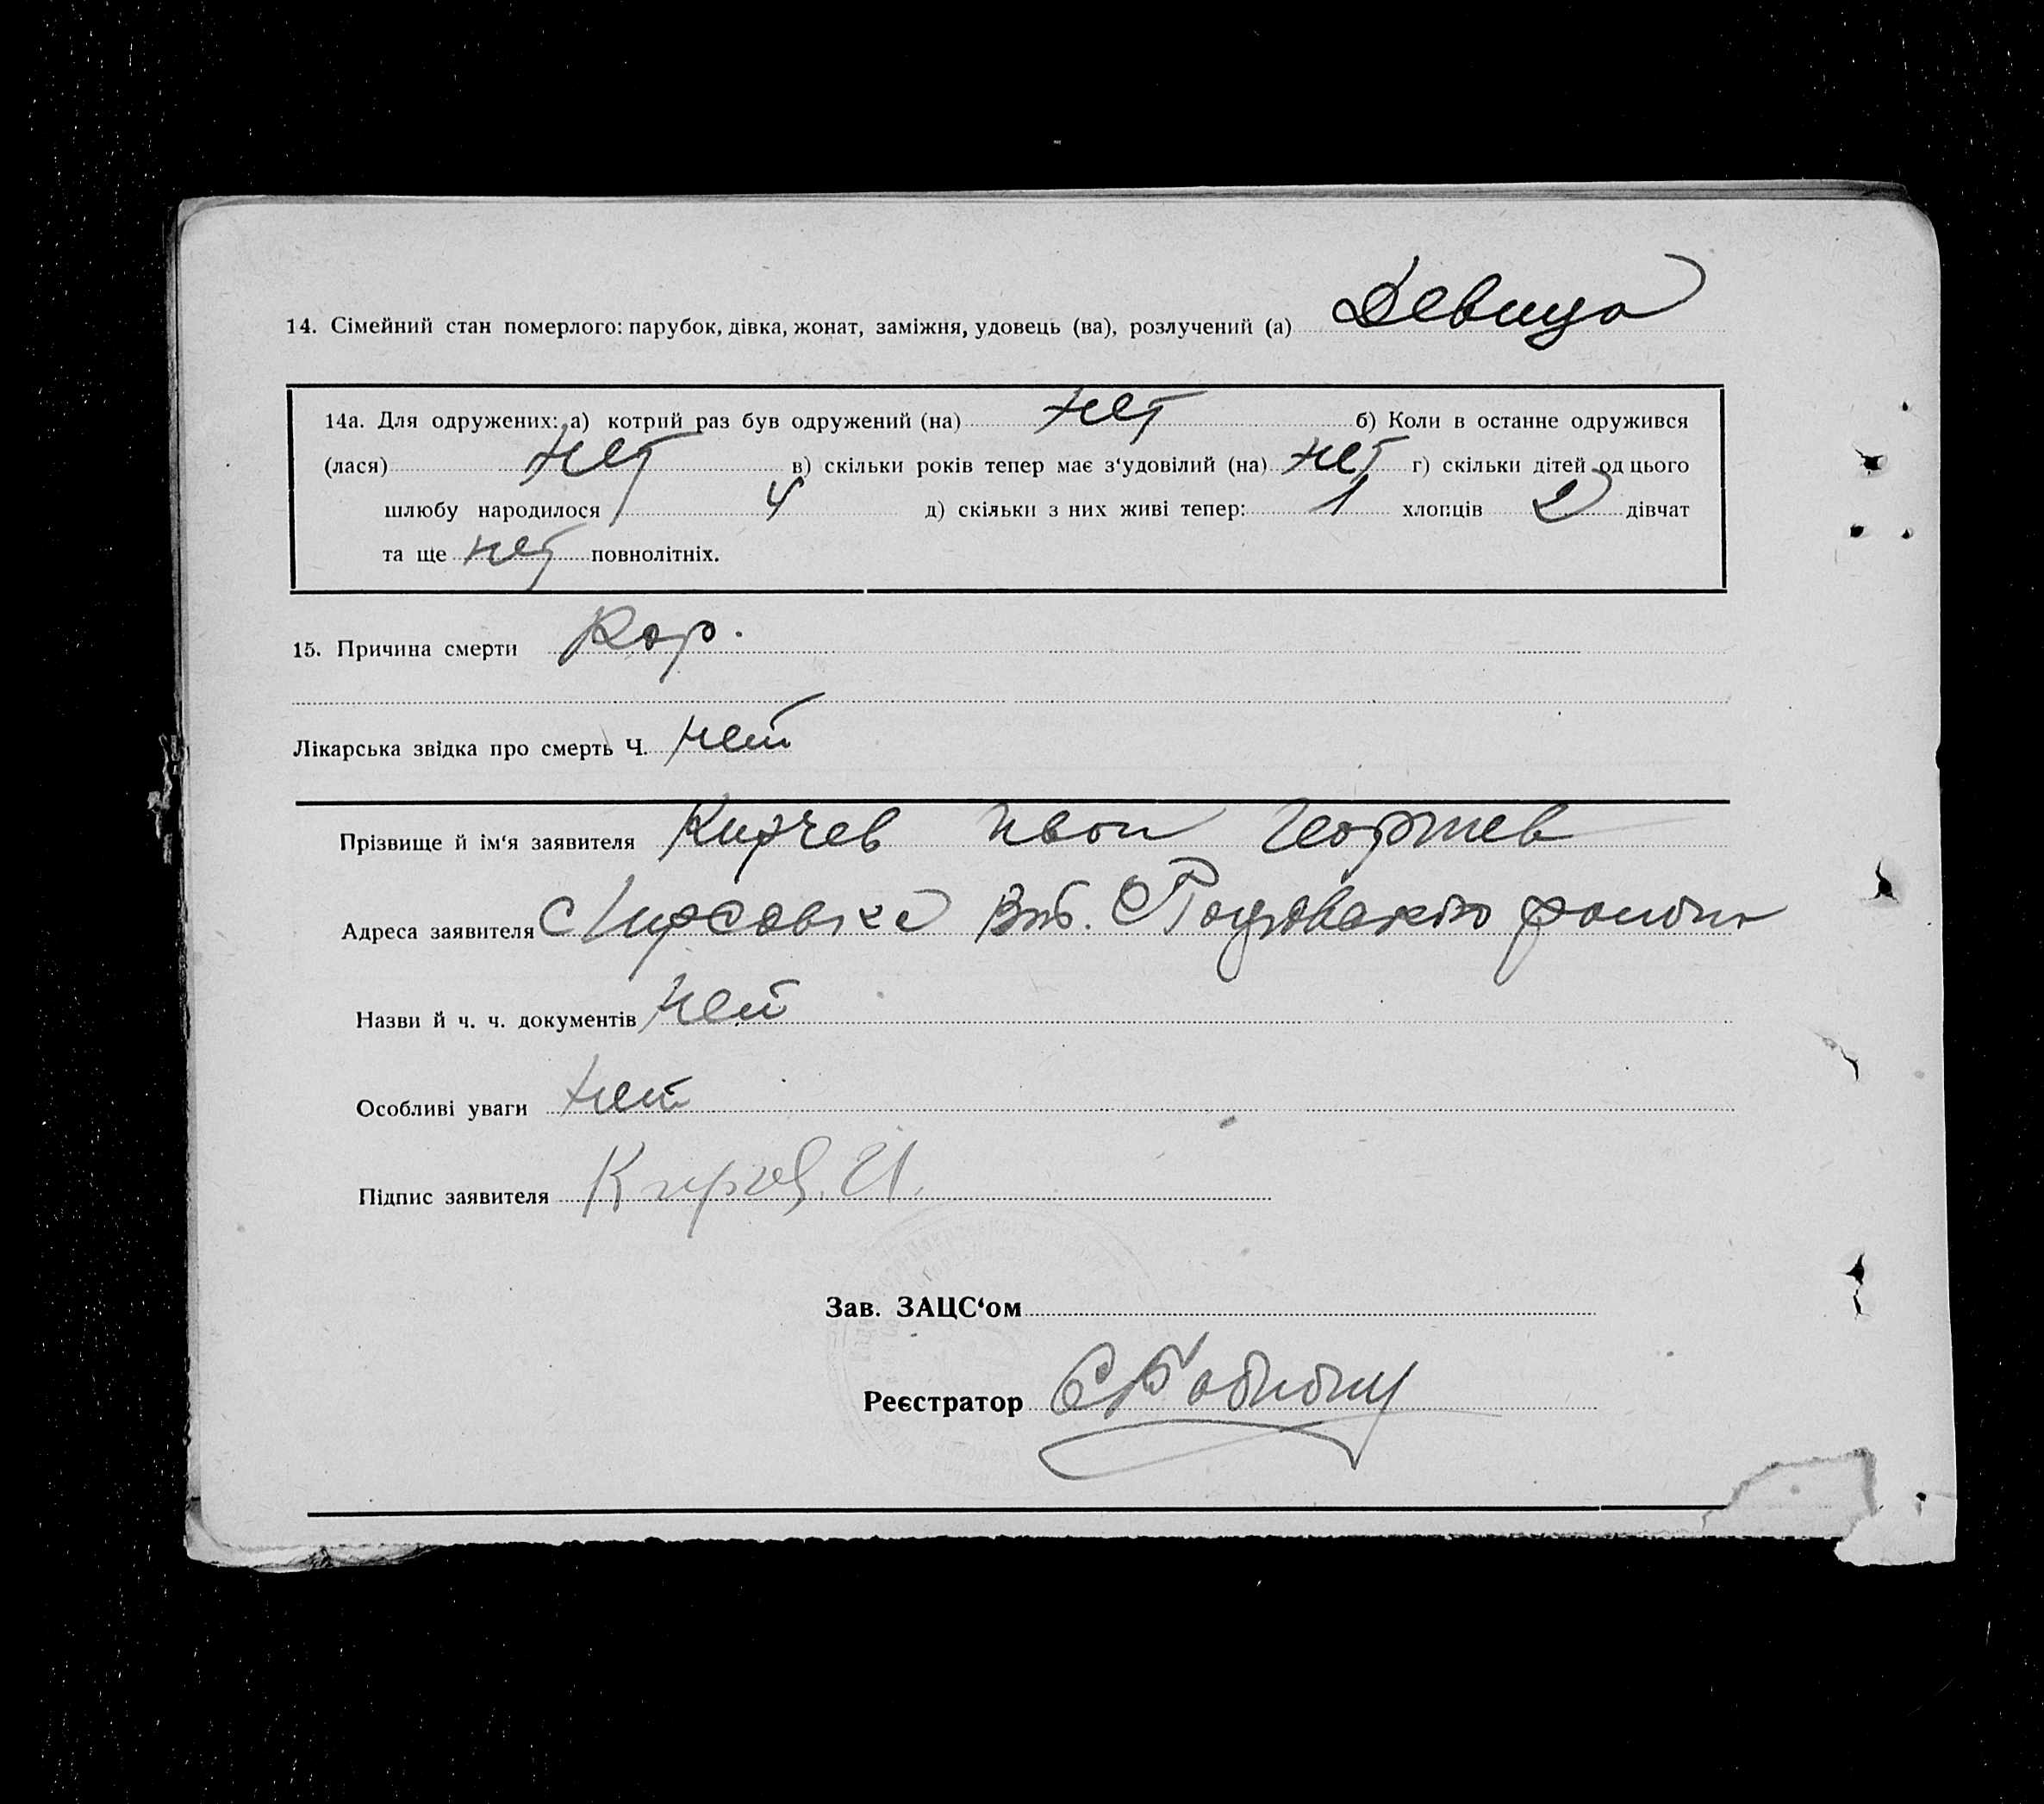 14. Сімейний стан померлого: парубок, дівка, жонат, заміжня, удовець (ва), розлучений (а) Девица
14а. Для одружених: а) котрий раз був одружений (на) нет б) Коли в останне одружився
(лася) нет в) скільки років тепер має з‘удовілий (на) нет г) скільки дітей од цього
шлюбу народилося 4 д) скільки з них живі тепер: 1 хлопців 2 дівчат
та ще нет повнолітніх.
15. Причина смерти Кор.
Лікарська звідка про смерть Ч. нет
Прізвище й ім‘я заявителя Кирчев Иван Георгиев
Адреса заявителя
Назви й ч. ч. документів нет
Особливі уваги нет
Підпис заявителя Кирчев. И.
Зав. ЗАЦС‘ом
Реєстратор